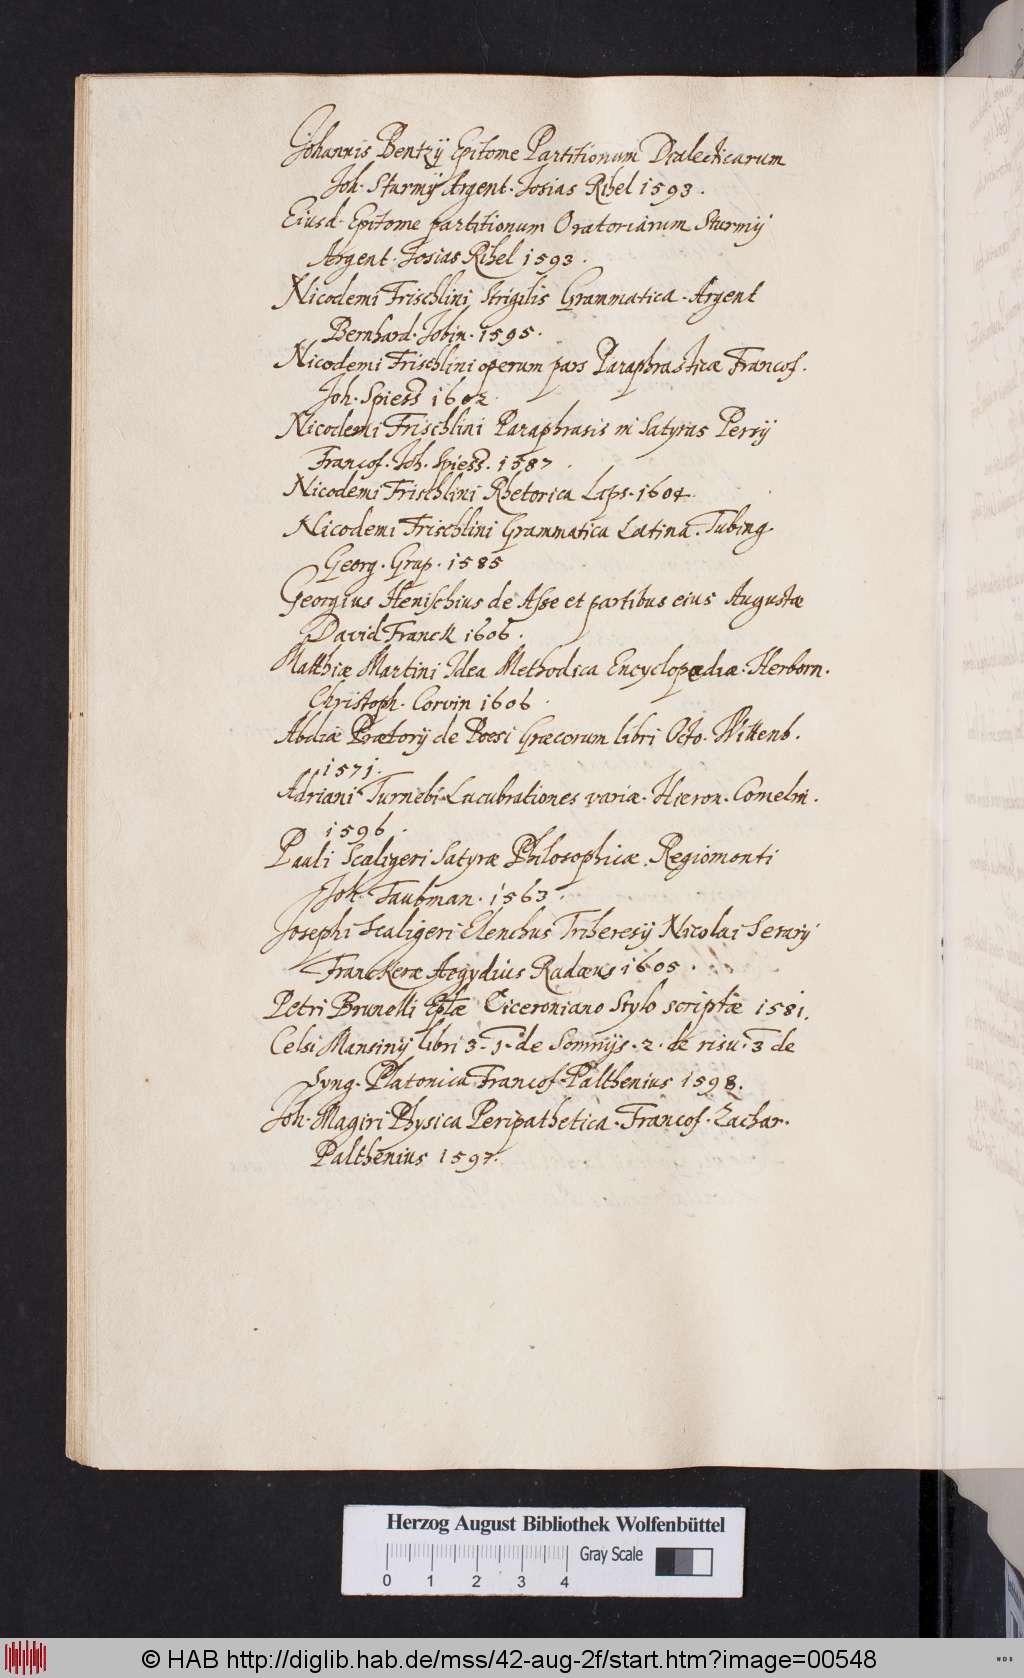 Johannis Bentzij Epitome Partitionum Dialecticarum
Joh. Sturmij Argent. Josias Rihel 1593.
Eiusd. Epitome partitionum Oratoriarum Sturmij
Argent. Josias Rihel 1593.
Nicodemi Frischlini Strigilis Grammatica. Argent
Bernhard. Jobin. 1595.
Nicodemi Frischlini operum pars Paraphrasticæ Francof.
Joh. Spiess 1602.
Nicodemi Frischlini Paraphrasis in Satyras Persij
Francof. Joh. Spiess. 1587.
Nicodemi Frischlini Rhetorica Laps. 1604.
Nicodemi Frischlini Grammatica Latina. Tubing
Georg. Grup. 1585
Georgius Henischius de Asse et partibus eius Augustæ
David Franck 1606.
Matthiæ Martini Idea Methodica Encyclopædiæ. Herborn.
Christoph. Corvin 1606.
Abdiæ Prætorij de Poesi Græcorum libri Octo. Wittenb.
1571.
Adriani Turnebi Lucubrationes variæ. Hieron. Comelin.
1596.
Pauli Scaligeri Satyræ Philosophicæ. Regiomonti
Joh. Taubman. 1563.
Josephi Scaligeri Elenchus Triheresij Nicolai Serarij
Franckeræ Aegydius Radæus 1605.
Petri Brunelli Eplæ Ciceroniano Stylo scriptæ 1581.
Celsi Mansinij libri 3. 1. de Somnijs. 2. de risu. 3 de
Syng. Platonica. Francof. Palthenius 1598.
Joh. Magiri Physica Peripathetica. Francof. Zachar.
Palthenius 1597.
Herzog August Bibliothek Wolfenbüttel
Gray Scale
0 1 2 3 4
© HAB http://diglib.hab.de/mss/42-aug-2f/start.htm?image=00548